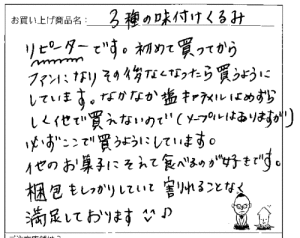 お買い上げ商品名: 3種の味付けくるみ
リピーターです。初めて買ってから
ファンになりその後なくなったら買うように
しています。なかなか塩キャラメルはめずら
しく他で買えないので(メープルはありますが)
必ずここで買うようにしています。
他のお菓子にそえて食べるのが好きです。
梱包もしっかりしていて割れることなく
満足しております